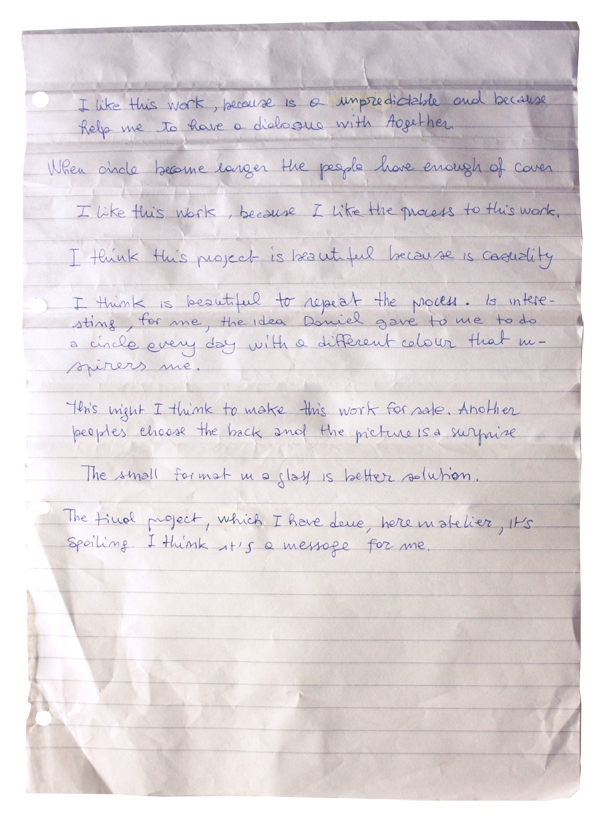 I like this work, because is a unpredictable and because
help me to have a dialogue with Aogether
When circle become larger the people have enough of cover
I like this work, because I like the process to this work.
I think this project is beautiful because is casuality
I think is beautiful to repeat the process. Is intere-
sting, for me, the idea Daniel gave to me to do
a circle every day with a different colour that in-
spirers me.
This night I think to make this work for sale. Another
peoples choose the back and the picture is a surprise
The small format in a glass is better solution.
The final project, which I have done, here in atelier, it's
spoiling. I think it's a message for me.